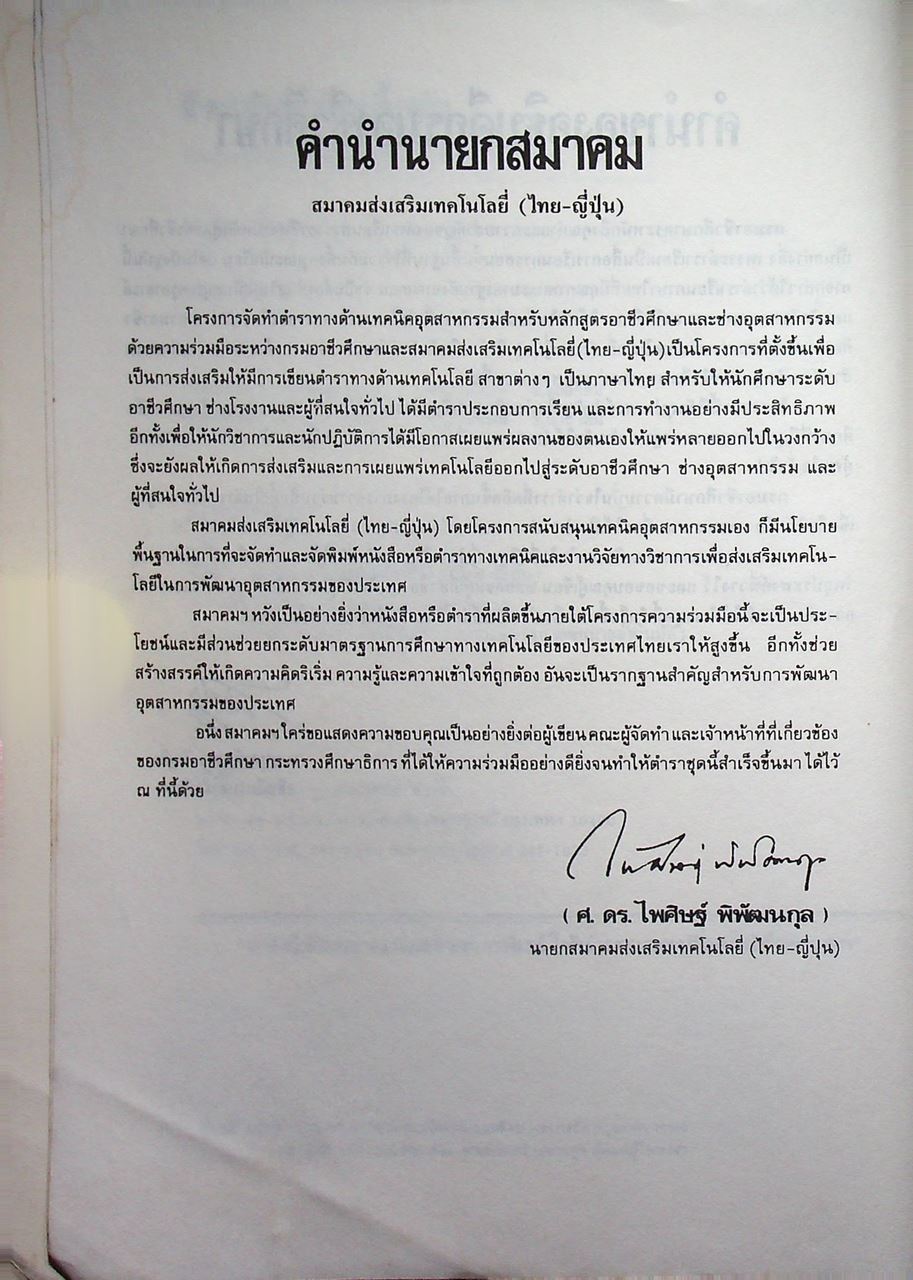 คำนำนายกสมาคม
สมาคมส่งเสริมเทคโนโลยี่ (ไทย-ญี่ปุ่น)
โครงการจัดทำตำราทางด้านเทคนิคอุตสาหกรรมสำหรับหลักสูตรอาชีวศึกษาและช่างอุตสาหกรรม
ด้วยความร่วมมือระหว่างกรมอาชีวศึกษาและสมาคมส่งเสริมเทคโนโลยี่(ไทย-ญี่ปุ่น)เป็นโครงการที่ตั้งขึ้นเพื่อ
เป็นการส่งเสริมให้มีการเขียนตำราทางด้านเทคโนโลยี สาขาต่างๆ เป็นภาษาไทย สำหรับให้นักศึกษาระดับ
อาชีวศึกษา ช่างโรงงานและผู้ที่สนใจทั่วไป ได้มีตำราประกอบการเรียน และการทำงานอย่างมีประสิทธิภาพ
อีกทั้งเพื่อให้นักวิชาการและนักปฏิบัติการได้มีโอกาสเผยแพร่ผลงานของตนเองให้แพร่หลายออกไปในวงกว้าง
ซึ่งจะยังผลให้เกิดการส่งเสริมและการเผยแพร่เทคโนโลยีออกไปสู่ระดับอาชีวศึกษา ช่างอุตสาหกรรม และ
ผู้ที่สนใจทั่วไป
สมาคมส่งเสริมเทคโนโลยี่ (ไทย-ญี่ปุ่น) โดยโครงการสนับสนุนเทคนิคอุตสาหกรรมเอง ก็มีนโยบาย
พื้นฐานในการที่จะจัดทำและจัดพิมพ์หนังสือหรือตำราทางเทคนิคและงานวิจัยทางวิชาการเพื่อส่งเสริมเทคโน-
โลยีในการพัฒนาอุตสาหกรรมของประเทศ
สมาคมฯ หวังเป็นอย่างยิ่งว่าหนังสือหรือตำราที่ผลิตขึ้นภายใต้โครงการความร่วมมือนี้ จะเป็นประ-
โยชน์และมีส่วนช่วยยกระดับมาตรฐานการศึกษาทางเทคโนโลยีของประเทศไทยเราให้สูงขึ้น อีกทั้งช่วย
สร้างสรรค์ให้เกิดความคิดริเริ่ม ความรู้และความเข้าใจที่ถูกต้อง อันจะเป็นรากฐานสำคัญสำหรับการพัฒนา
อุตสาหกรรมของประเทศ
อนึ่ง สมาคมฯ ใคร่ขอแสดงความขอบคุณเป็นอย่างยิ่งต่อผู้เขียน คณะผู้จัดทำ และเจ้าหน้าที่ที่เกี่ยวข้อง
ของกรมอาชีวศึกษา กระทรวงศึกษาธิการ ที่ได้ให้ความร่วมมืออย่างดียิ่งจนทำให้ตำราชุดนี้สำเร็จขึ้นมา ได้ไว้
ณ ที่นี้ด้วย
( ศ. ดร. ไพศิษฐ์ พิพัฒนกุล )
นายกสมาคมส่งเสริมเทคโนโลยี่ (ไทย-ญี่ปุ่น)